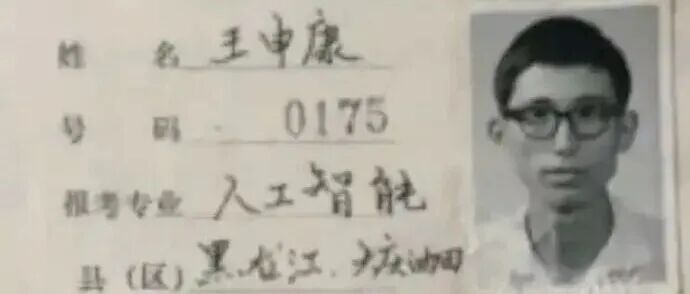 姓 名 王申康
号 码 0175
报考专业 人工智能
县（区） 黑龙江、大庆油田